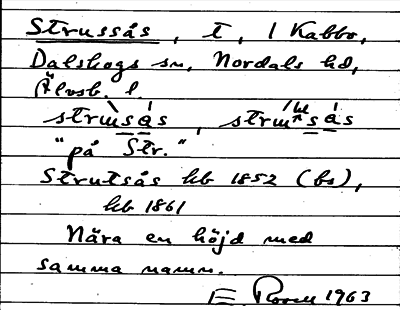 Strussås, t, 1 Kabbo,
Dalskogs sn, Nordals hd,
Älvsb. l.
"på Str."
Strutsås hb 1852 (bs),
hb 1861
Nära en höjd med
samma namn.
E. 1963